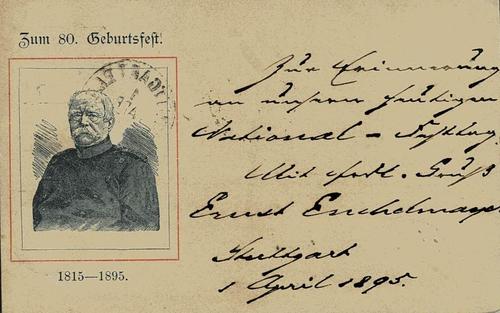 Zum 80. Geburtsfest.
1815—1895.
Zur Erinnerung
an unsern heutigen
National - Festtag.
Mit frdl. Gruß
Ernst
Stuttgart
1 April 1895.